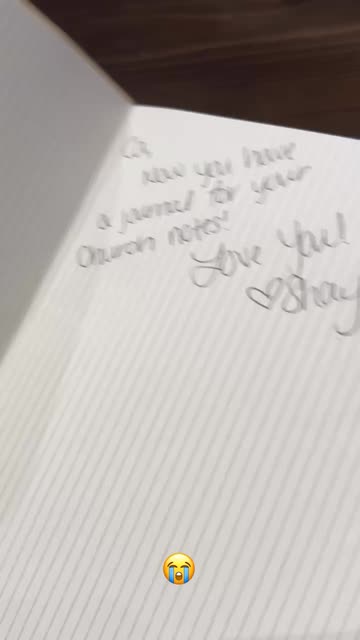 Now you have
a journal for your
Church notes!
Love You!
♡Shay
😭